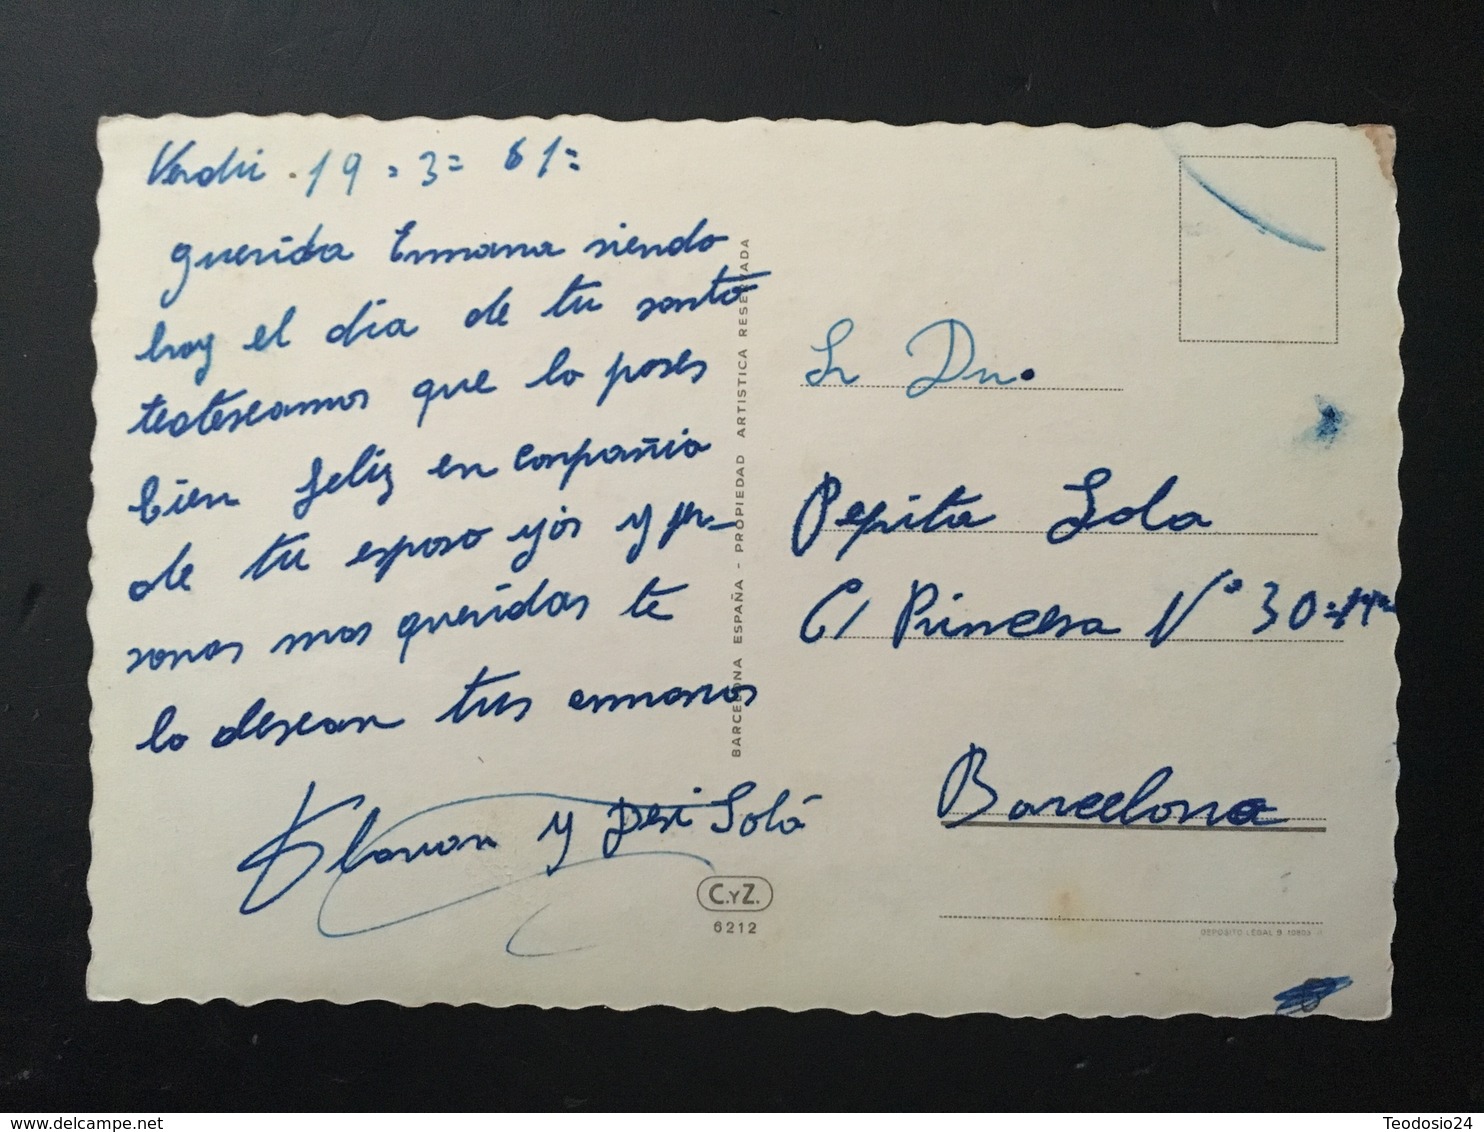 Verdú. 19=3=61=
querida Ermana siendo
hoy el dia de tu santo
tedeseamos que lo pases
bien feliz en conpañia
de tu esposo yjos y per-
sonas mas queridas te
lo desean tus ermanos
y Pepi Solá
Sr Dn.
Pepita Sola
C/ Princesa Nº 30=1º1ª
Barcelona
BARCELONA ESPAÑA - PROPIEDAD ARTISTICA RESERVADA
C.YZ.
6212
DEPOSITO LEGAL B 10803
Teodosio24